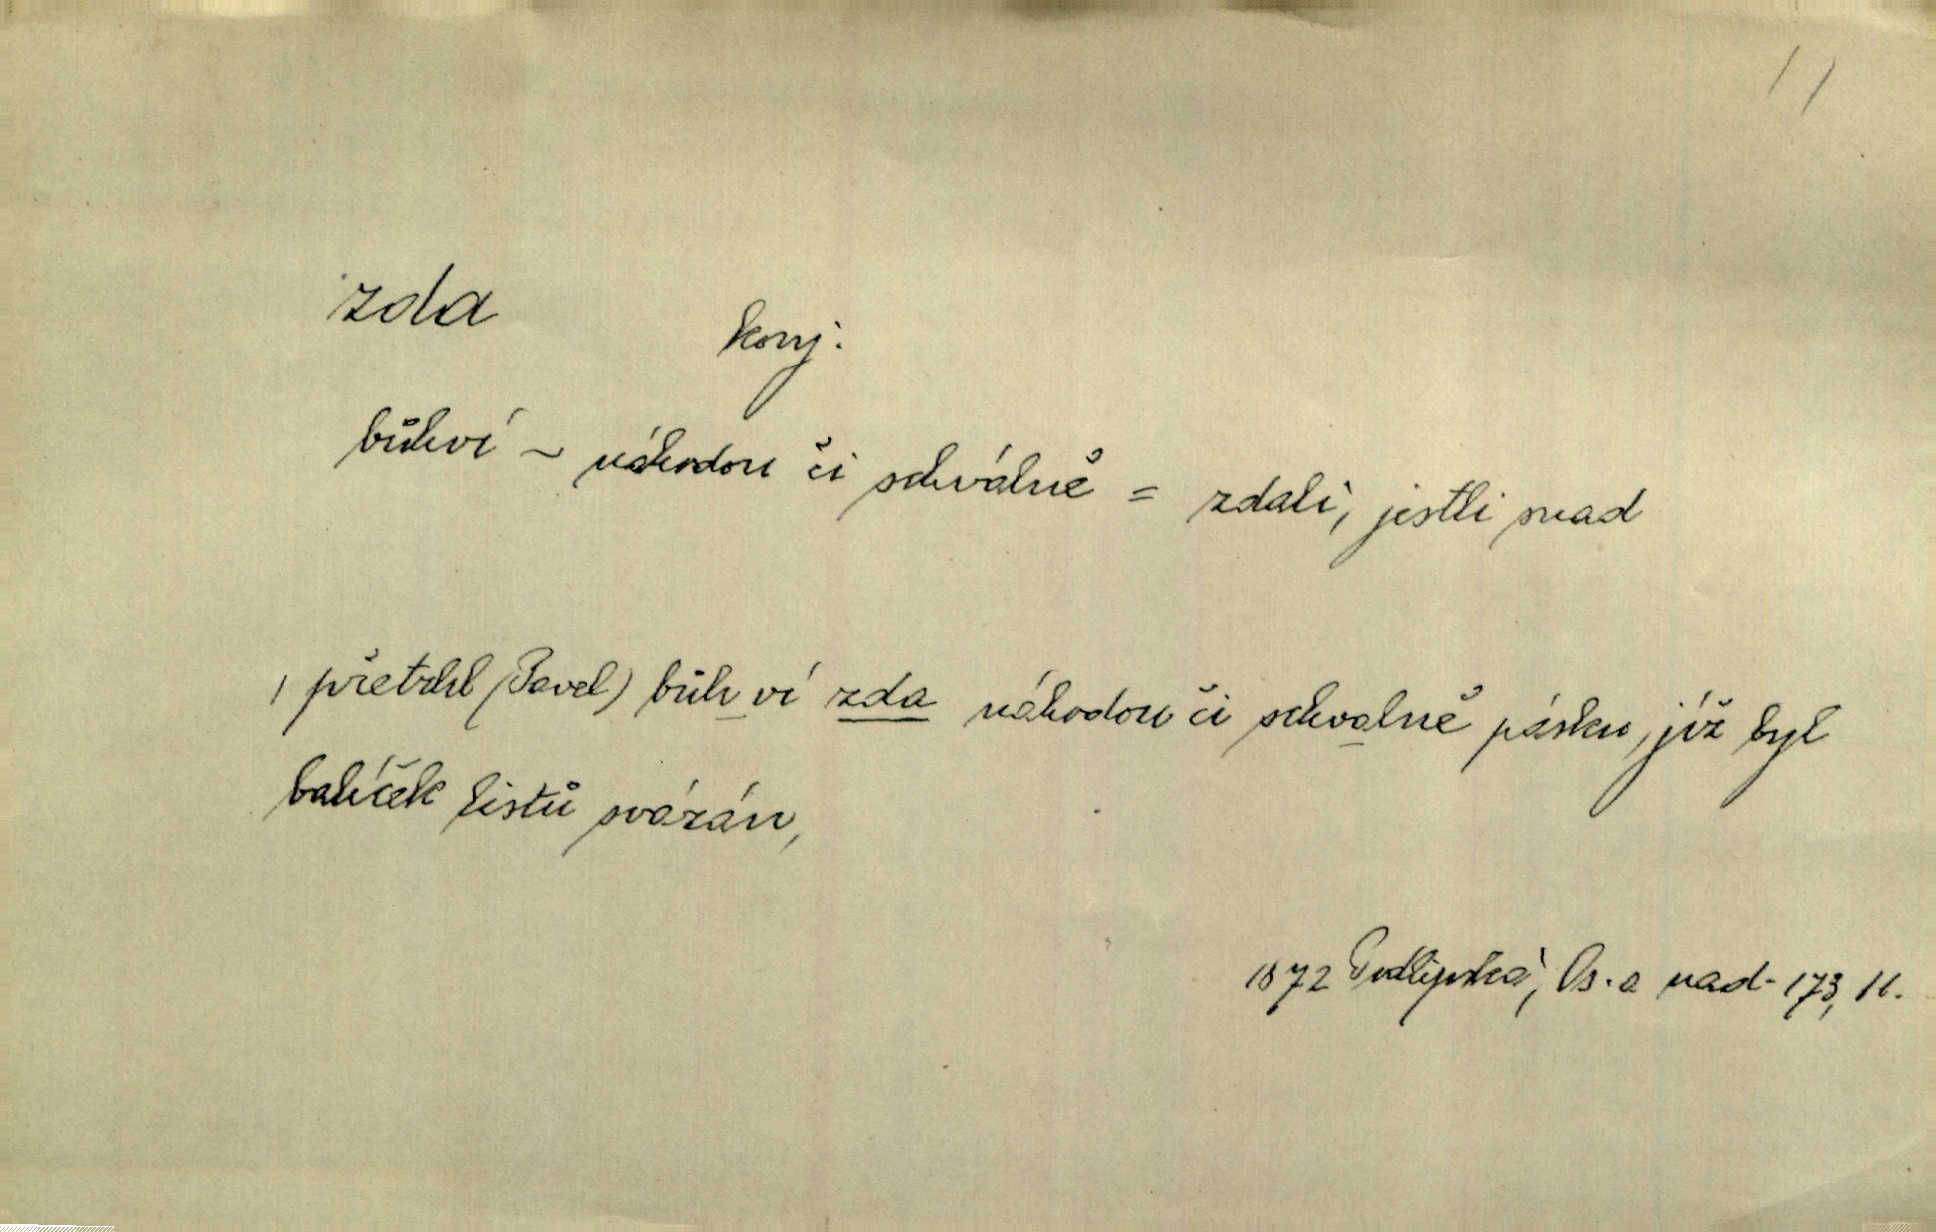 zda
konj.
bůhví ~ náhodou či schválně = zdali, jestli snad
, přetrhl (Pavel) bůh ví zda náhodou či schvalně pásku, jíž byl
balíček listů svázán,
1872 Podlipská, Os. a nad. 173, 11.